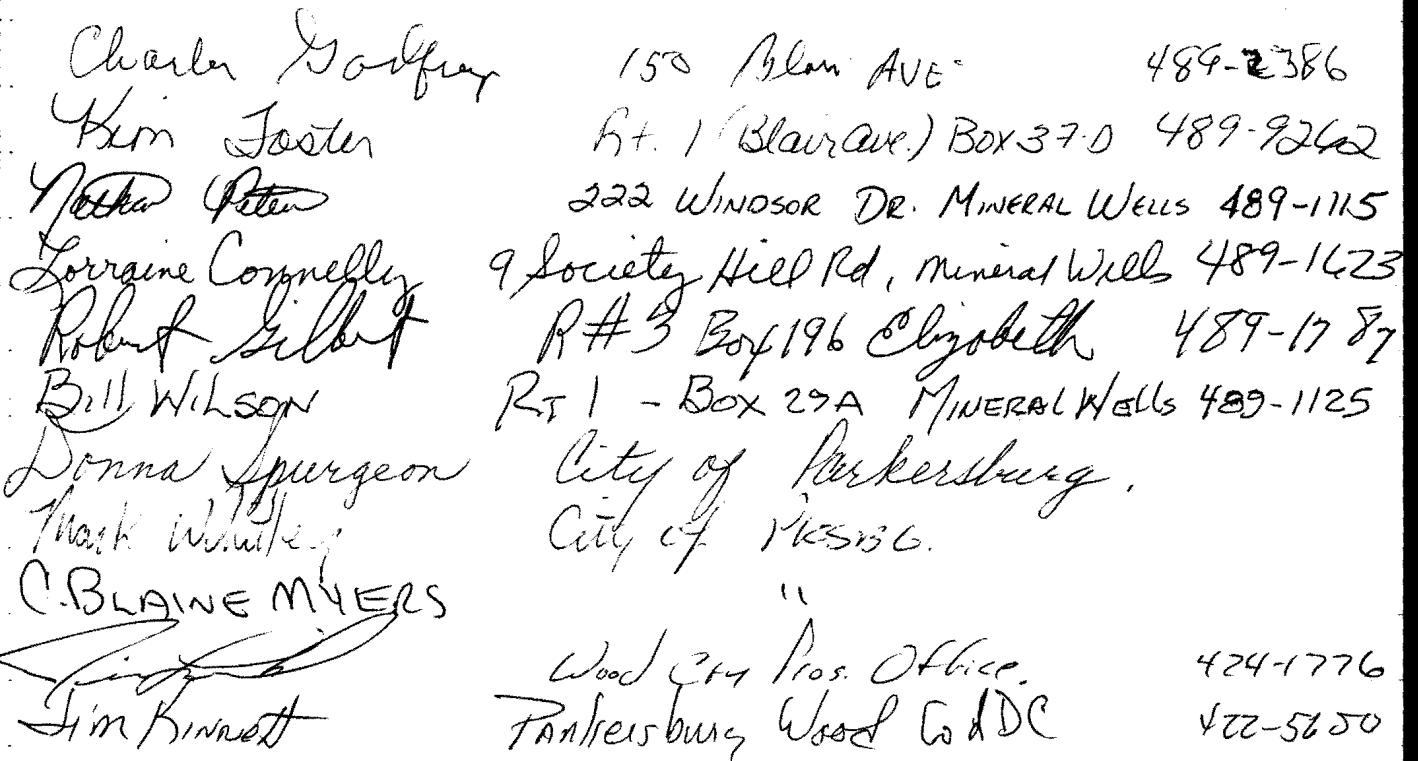 Charles Godfrey 150 Blair AVE 489-2386
Kim Foster Rt. 1 (Blair Ave.) Box 37-D 489-9262
222 WINDSOR DR. MINERAL WELLS 489-1115
Lorraine Connelly 9 Society Hill Rd, Mineral Wells 489-1623
Robert Gilbert R#3 Box 196 Elizabeth 489-1787
Bill WILSON RT 1 - BOX 29A MINERAL WELLS 489-1125
Donna Spurgeon City of Parkersburg.
Mark Whitley City of PKSBG.
C. BLAINE MYERS "
Wood Cty Pros. Office. 424-1776
Jim Kinnett Parkersburg Wood Co 422-5650